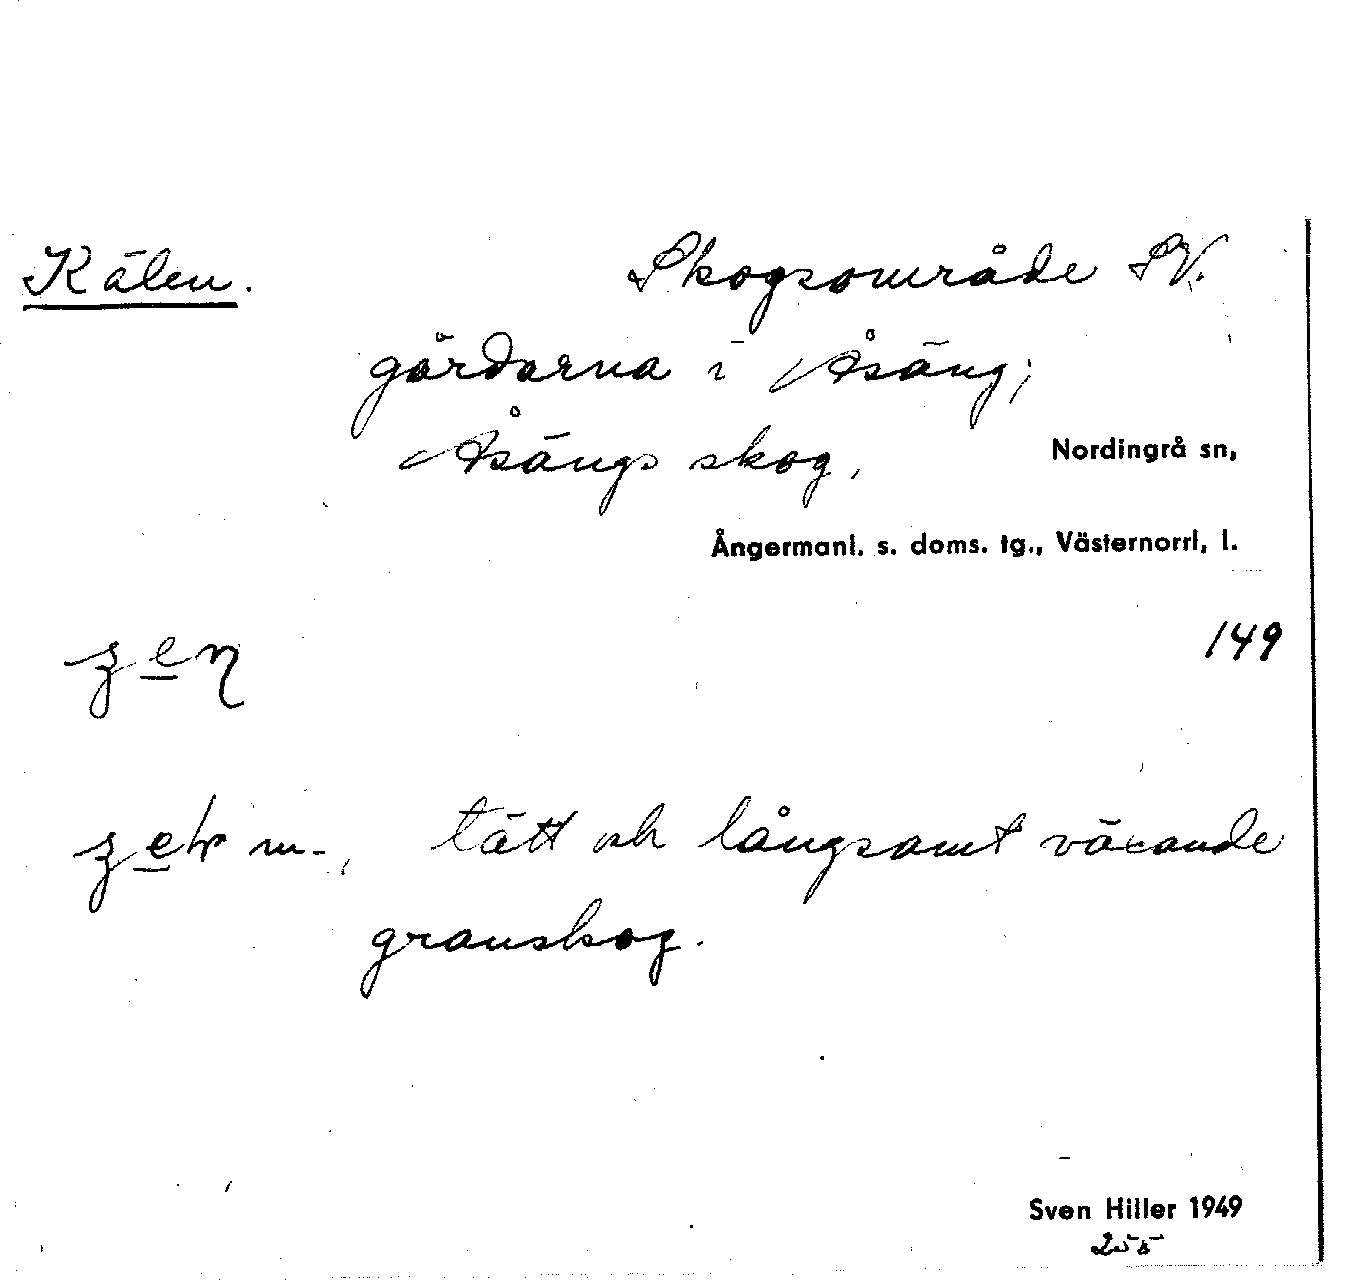 Kälen.
Skogsområde SV.
gårdarna i Åsäng;
Åsängs skog,
Nordingrå sn,
Ångermanl. s. doms. tg., Västernorrl, l.
149
m., tätt och långsamt växande
granskog.
Sven Hiller 1949